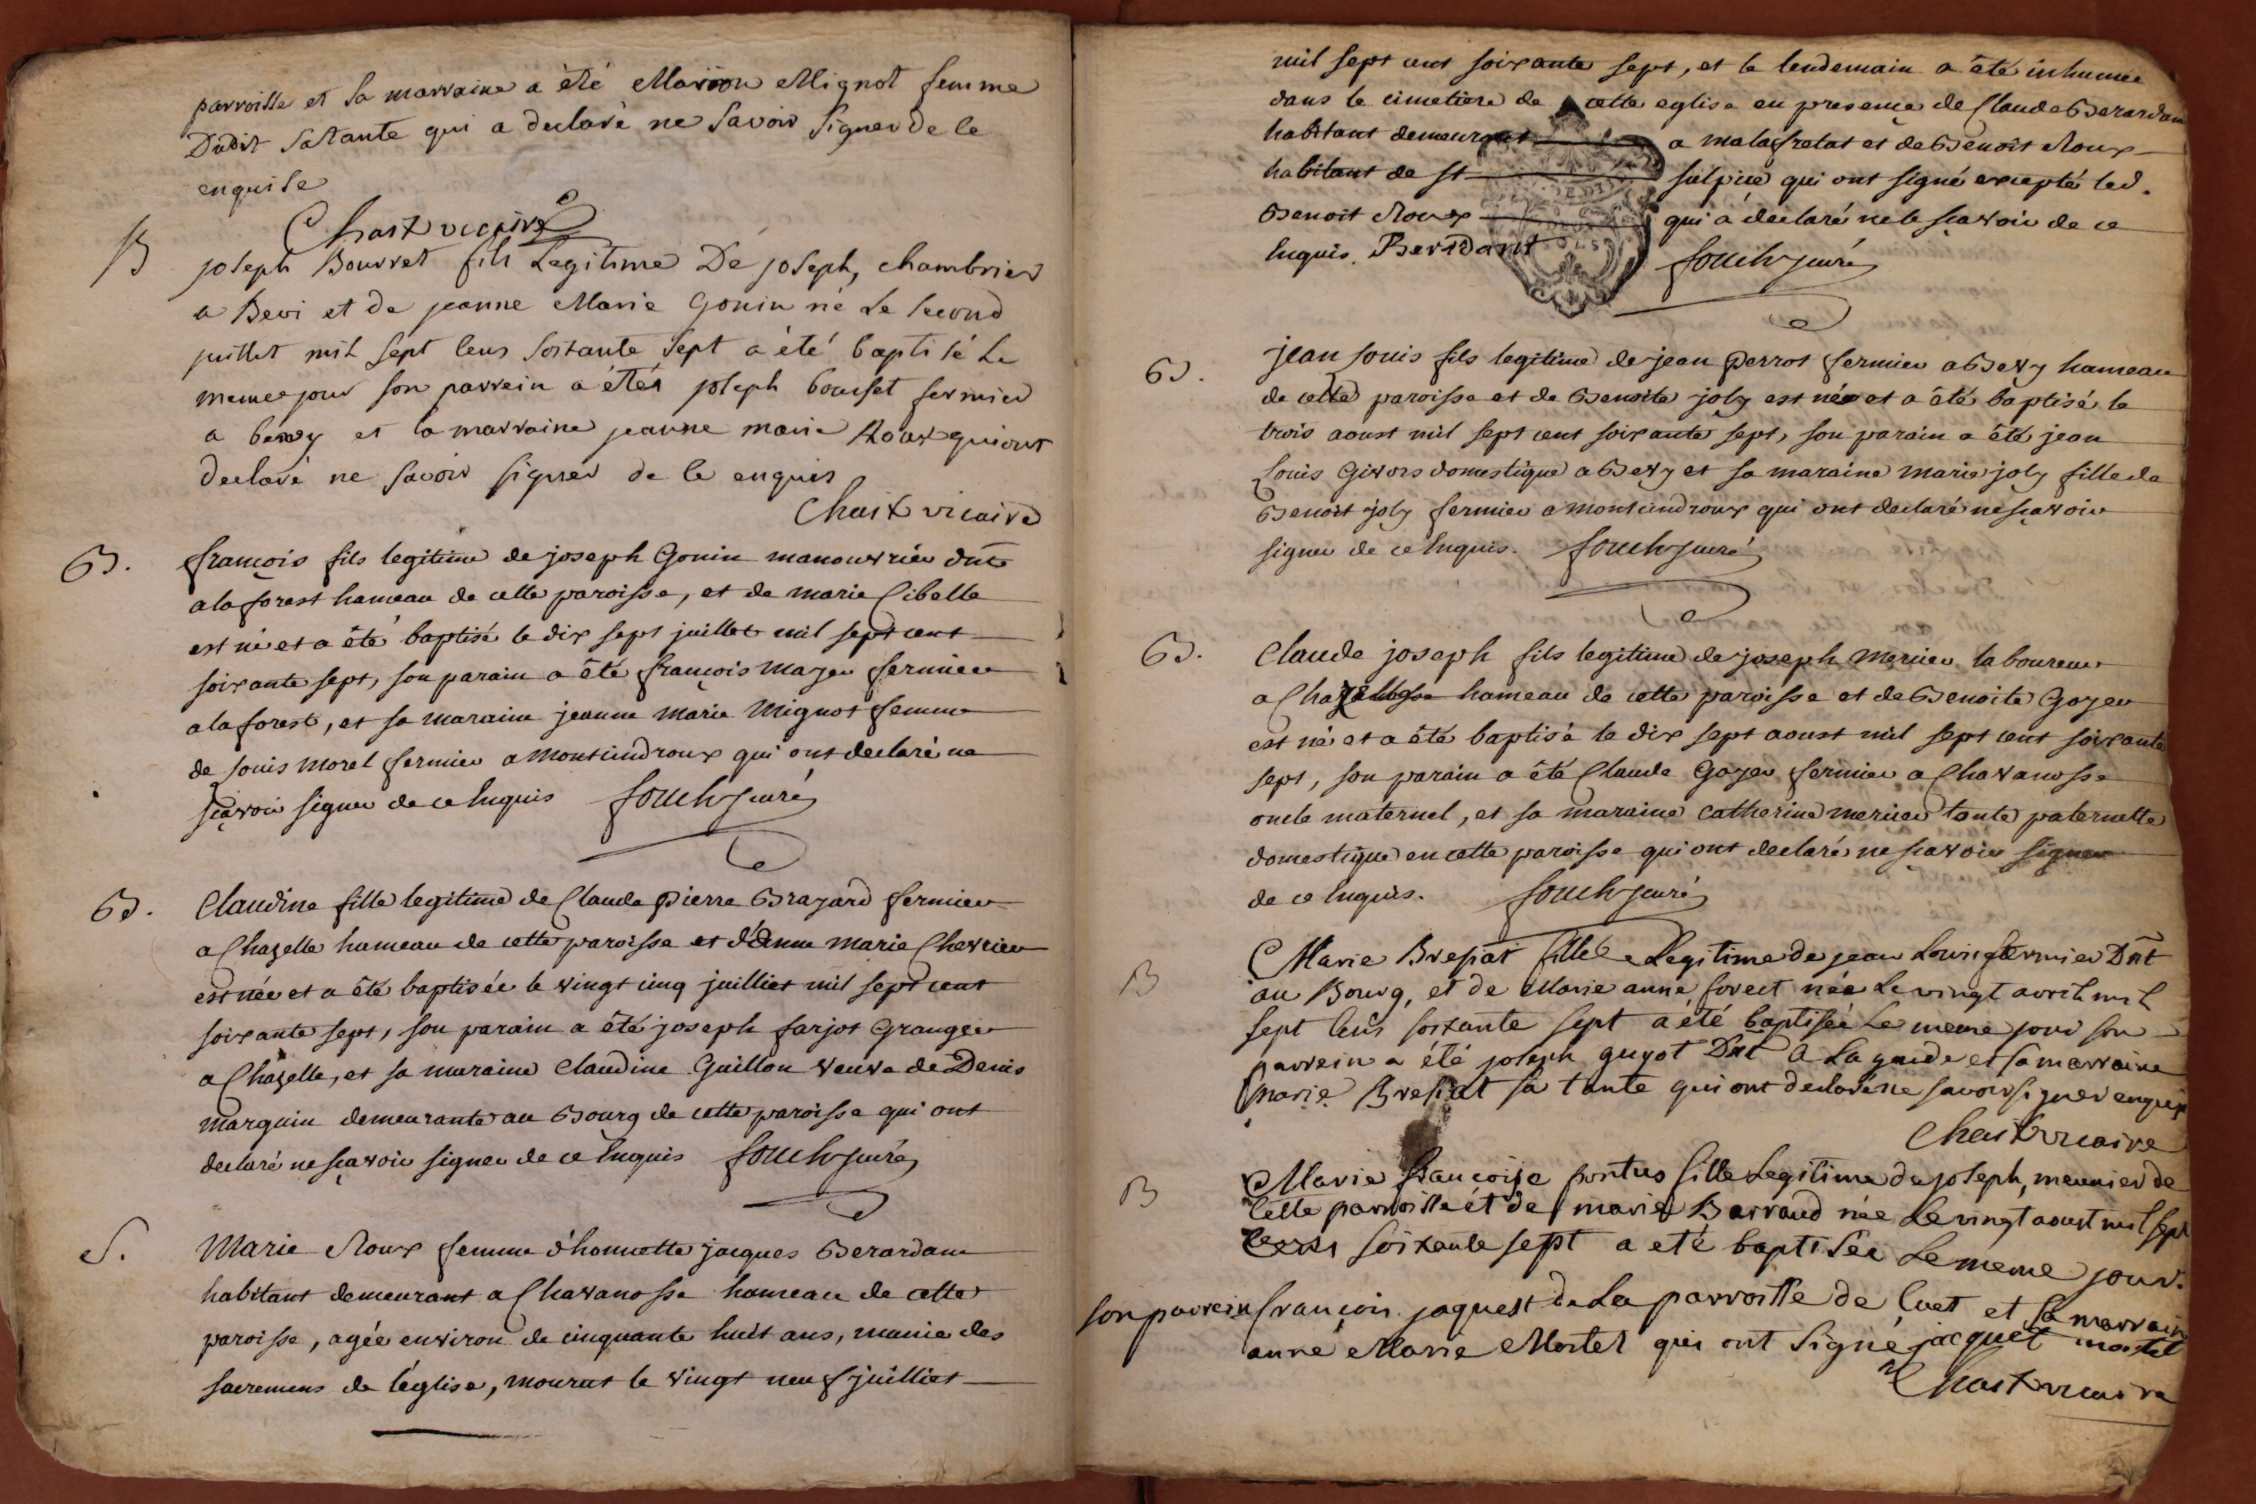 parroisse et sa marraine a été Marion Mignot femme
Dudit sa tante qui a declaré ne savoir signer de ce
enquise
Chaix vicaire
B
joseph Bourret fils Legitime De joseph, chambrier
a Bevi et de jeanne Marie Gonin né Le second
juillet mil sept cens soixante sept a été baptisé Le
meme jour son parrein a été joseph bousset fermier
a bevy et la marraine jeanne marie Roux qui ont
declaré ne savoir signer de ce enquis
Chaix vicaire
B.
françois fils legitime de joseph Gonin manouvrier dnt
a la forest hameau de cette paroisse, et de marie Cibelle
est né et a été baptisé le dix sept juillet mil sept cent
soixante sept, son parain a été françois mayer fermier
a la forest, et sa maraine jeanne marie mignot femme
de Louis morel fermier a montcindroux qui ont declaré ne
sçavoir signer de ce Inquis fouch curé
B.
Claudine fille legitime de Claude pierre Brazard fermier
a Chazelle hameau de cette paroisse et d'anne marie Chevrier
est née et a été baptisée le vingt cinq juilliet mil sept cent
soixante sept, son parain a été joseph farjot Granger
a Chazelle, et sa maraine Claudine Guillon veuve de Denis
marguin demeurante au Bourg de cette paroisse qui ont
declaré ne sçavoir signer de ce Inquis fouch curé
S.
Marie Roux femme d'honnette jacques Berardan
habitant demeurant a Chavanosse hameau de cette
paroisse, agée environ de cinquante huit ans, munie des
sacremens de l'église, mourut le vingt neuf juilliet
mil sept cent soixante sept, et le lendemain a été inhumée
dans le cimetiere de cette eglise en presence de Claude Berardan
habitant demeurant a malafretat et de Benoit Roux
habitant de st sulpice qui ont signé excepté led.
Benoit Roux qui a declaré ne le sçavoir de ce
Inquis. Berardant fouch curé
B.
jean Louis fils legitime de jean perrot fermier a Bevy hameau
de cette paroisse et de Benoite joly est né et a été baptisé le
trois aoust mil sept cent soixante sept, son parain a été jean
Louis Givors domestique a Bevy et sa maraine marie joly fille de
Benoit joly fermier a montcindroux qui ont declaré ne sçavoir
signer de ce Inquis. fouch curé
B.
Claude joseph fils legitime de joseph mercier laboureur
a hameau de cette paroisse et de Benoite Goyer
est né et a été baptisé le dix sept aoust mil sept cent soixante
sept, son parain a été Claude Goyer fermier a Chavanosse
oncle maternel, et sa maraine catherine mercier tante paternelle
domestique en cette paroisse qui ont declaré ne sçavoir signer
de ce Inquis. fouch curé
B
Marie Brepat fille Legitime de jean Louis fermier Dnt
au Bourg, et de Marie anne forest née Le vingt avril mil
sept cens soixante sept a été baptisée Le meme jour son
parrein a été joseph guyot Dnt a La gaide et sa marraine
Marie Brepat sa tante qui ont declaré ne savoir signer enquis
Chaix vicaire
B
Marie françoise pontus fille Legitime de joseph, meunier de
cette parroisse et de marie Barraud née Le vingt aoust mil sept
cens soixante sept a eté baptisée Le meme jour.
son parrein françois jaquest de La parroisse de Cuet et sa marraine
anne Marie Mortel qui ont signé jacquet mortel
Chaix vicaire